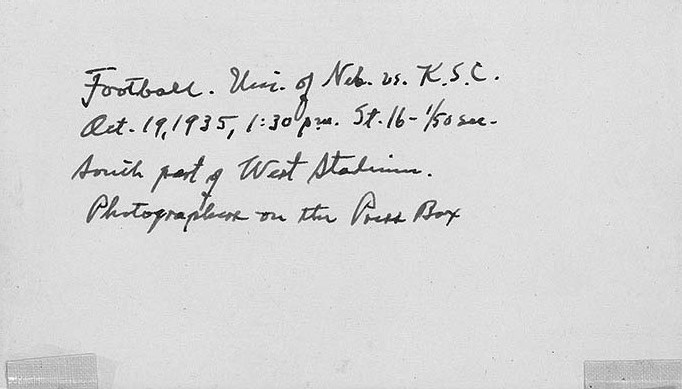 Football. Uni. of Neb. vs. K.S.C.
Oct. 19, 1935, 1:30 pm. St. 16 - 1/50 sec.
South part of West Stadium.
Photographers on the Press Box